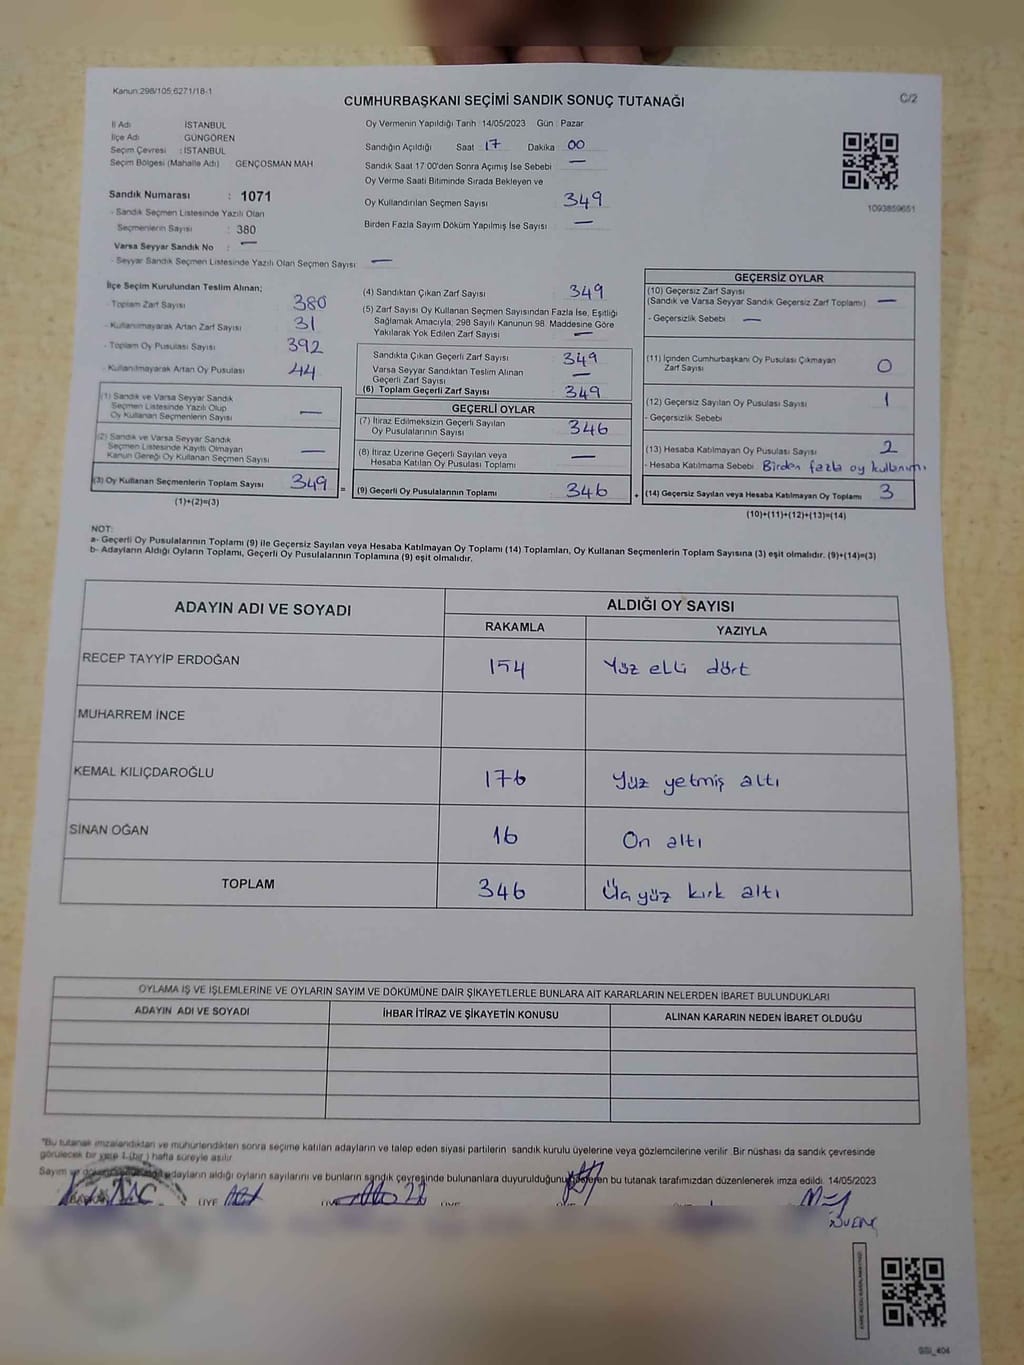 Kanun:298/105;6271/18-1
CUMHURBAŞKANI SEÇİMİ SANDIK SONUÇ TUTANAĞI
C/2
İl Adı İSTANBUL
İlçe Adı GÜNGÖREN
Seçim Çevresi : İSTANBUL
Seçim Bölgesi (Mahalle Adı) GENÇOSMAN MAH
Sandık Numarası : 1071
- Sandık Seçmen Listesinde Yazılı Olan
Seçmenlerin Sayısı : 380
Varsa Seyyar Sandık No : —
- Seyyar Sandık Seçmen Listesinde Yazılı Olan Seçmen Sayısı : —
Oy Vermenin Yapıldığı Tarih : 14/05/2023 Gün : Pazar
Sandığın Açıldığı Saat 17 Dakika 00
Sandık Saat 17:00'den Sonra Açımış İse Sebebi —
Oy Verme Saati Bitiminde Sırada Bekleyen ve
Oy Kullandırılan Seçmen Sayısı 349
Birden Fazla Sayım Döküm Yapılmış İse Sayısı —
1093859651
İlçe Seçim Kurulundan Teslim Alınan;
- Toplam Zarf Sayısı 380
- Kullanılmayarak Artan Zarf Sayısı 31
- Toplam Oy Pusulası Sayısı 392
- Kullanılmayarak Artan Oy Pusulası 44
(1) Sandık ve Varsa Seyyar Sandık
Seçmen Listesinde Yazılı Olup
Oy Kullanan Seçmenlerin Sayısı —
(2) Sandık ve Varsa Seyyar Sandık
Seçmen Listesinde Kayıtlı Olmayan
Kanun Gereği Oy Kullanan Seçmen Sayısı —
(3) Oy Kullanan Seçmenlerin Toplam Sayısı 349 =
(1)+(2)=(3)
(4) Sandıktan Çıkan Zarf Sayısı 349
(5) Zarf Sayısı Oy Kullanan Seçmen Sayısından Fazla İse, Eşitliği
Sağlamak Amacıyla, 298 Sayılı Kanunun 98. Maddesine Göre
Yakılarak Yok Edilen Zarf Sayısı —
Sandıkta Çıkan Geçerli Zarf Sayısı 349
Varsa Seyyar Sandıktan Teslim Alınan
Geçerli Zarf Sayısı —
(6) Toplam Geçerli Zarf Sayısı 349
GEÇERLİ OYLAR
(7) İtiraz Edilmeksizin Geçerli Sayılan
Oy Pusulalarının Sayısı 346
(8) İtiraz Üzerine Geçerli Sayılan veya
Hesaba Katılan Oy Pusulası Toplamı —
(9) Geçerli Oy Pusulalarının Toplamı 346 +
GEÇERSİZ OYLAR
(10) Geçersiz Zarf Sayısı
(Sandık ve Varsa Seyyar Sandık Geçersiz Zarf Toplamı) —
- Geçersizlik Sebebi —
(11) İçinden Cumhurbaşkanı Oy Pusulası Çıkmayan
Zarf Sayısı 0
(12) Geçersiz Sayılan Oy Pusulası Sayısı 1
- Geçersizlik Sebebi
(13) Hesaba Katılmayan Oy Pusulası Sayısı 2
- Hesaba Katılmama Sebebi Birden fazla oy kullanımı
(14) Geçersiz Sayılan veya Hesaba Katılmayan Oy Toplamı 3
(10)+(11)+(12)+(13)=(14)
NOT:
a- Geçerli Oy Pusulalarının Toplamı (9) ile Geçersiz Sayılan veya Hesaba Katılmayan Oy Toplamı (14) Toplamları, Oy Kullanan Seçmenlerin Toplam Sayısına (3) eşit olmalıdır. (9)+(14)=(3)
b- Adayların Aldığı Oyların Toplamı, Geçerli Oy Pusulalarının Toplamına (9) eşit olmalıdır.
ADAYIN ADI VE SOYADI ALDIĞI OY SAYISI
RAKAMLA YAZIYLA
RECEP TAYYİP ERDOĞAN 154 Yüz elli dört
MUHARREM İNCE
KEMAL KILIÇDAROĞLU 176 Yüz yetmiş altı
SİNAN OĞAN 16 On altı
TOPLAM 346 Üç yüz kırk altı
OYLAMA İŞ VE İŞLEMLERİNE VE OYLARIN SAYIM VE DÖKÜMÜNE DAİR ŞİKAYETLERLE BUNLARA AİT KARARLARIN NELERDEN İBARET BULUNDUKLARI
ADAYIN ADI VE SOYADI İHBAR İTİRAZ VE ŞİKAYETİN KONUSU ALINAN KARARIN NEDEN İBARET OLDUĞU
*Bu tutanak imzalandıktan ve mühürlendikten sonra seçime katılan adayların ve talep eden siyasi partilerin sandık kurulu üyelerine veya gözlemcilerine verilir. Bir nüshası da sandık çevresinde
görülecek bir yere 1 (bir) hafta süreyle asılır.
Sayım ve adayların aldığı oyların sayılarını ve bunların sandık çevresinde bulunanlara duyurulduğunu gösteren bu tutanak tarafımızdan düzenlenerek imza edildi. 14/05/2023
BAŞKAN ÜYE ÜYE ÜYE ÜYE
SSİ_404